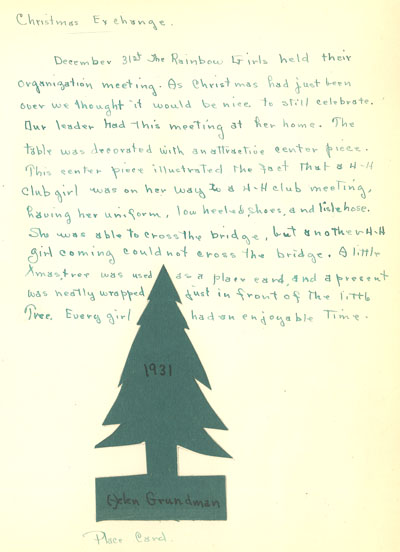 Christmas Exchange.
December 31st The Rainbow Girls held their
organization meeting. As Christmas had just been
over we thought it would be nice to still celebrate.
Our leader had this meeting at her home. The
table was decorated with an attractive center piece.
This center piece illustrated the fact that a 4-H
club girl was on her way to a 4-H club meeting,
having her uniform, low heeled shoes, and lisle hose.
She was able to cross the bridge, but another 4-H
girl coming could not cross the bridge. A little
Xmas tree was used as a place card, and a present
was neatly wrapped just in front of the little
Tree. Every girl had an enjoyable Time.
1931
Helen Grundman
Place Card.